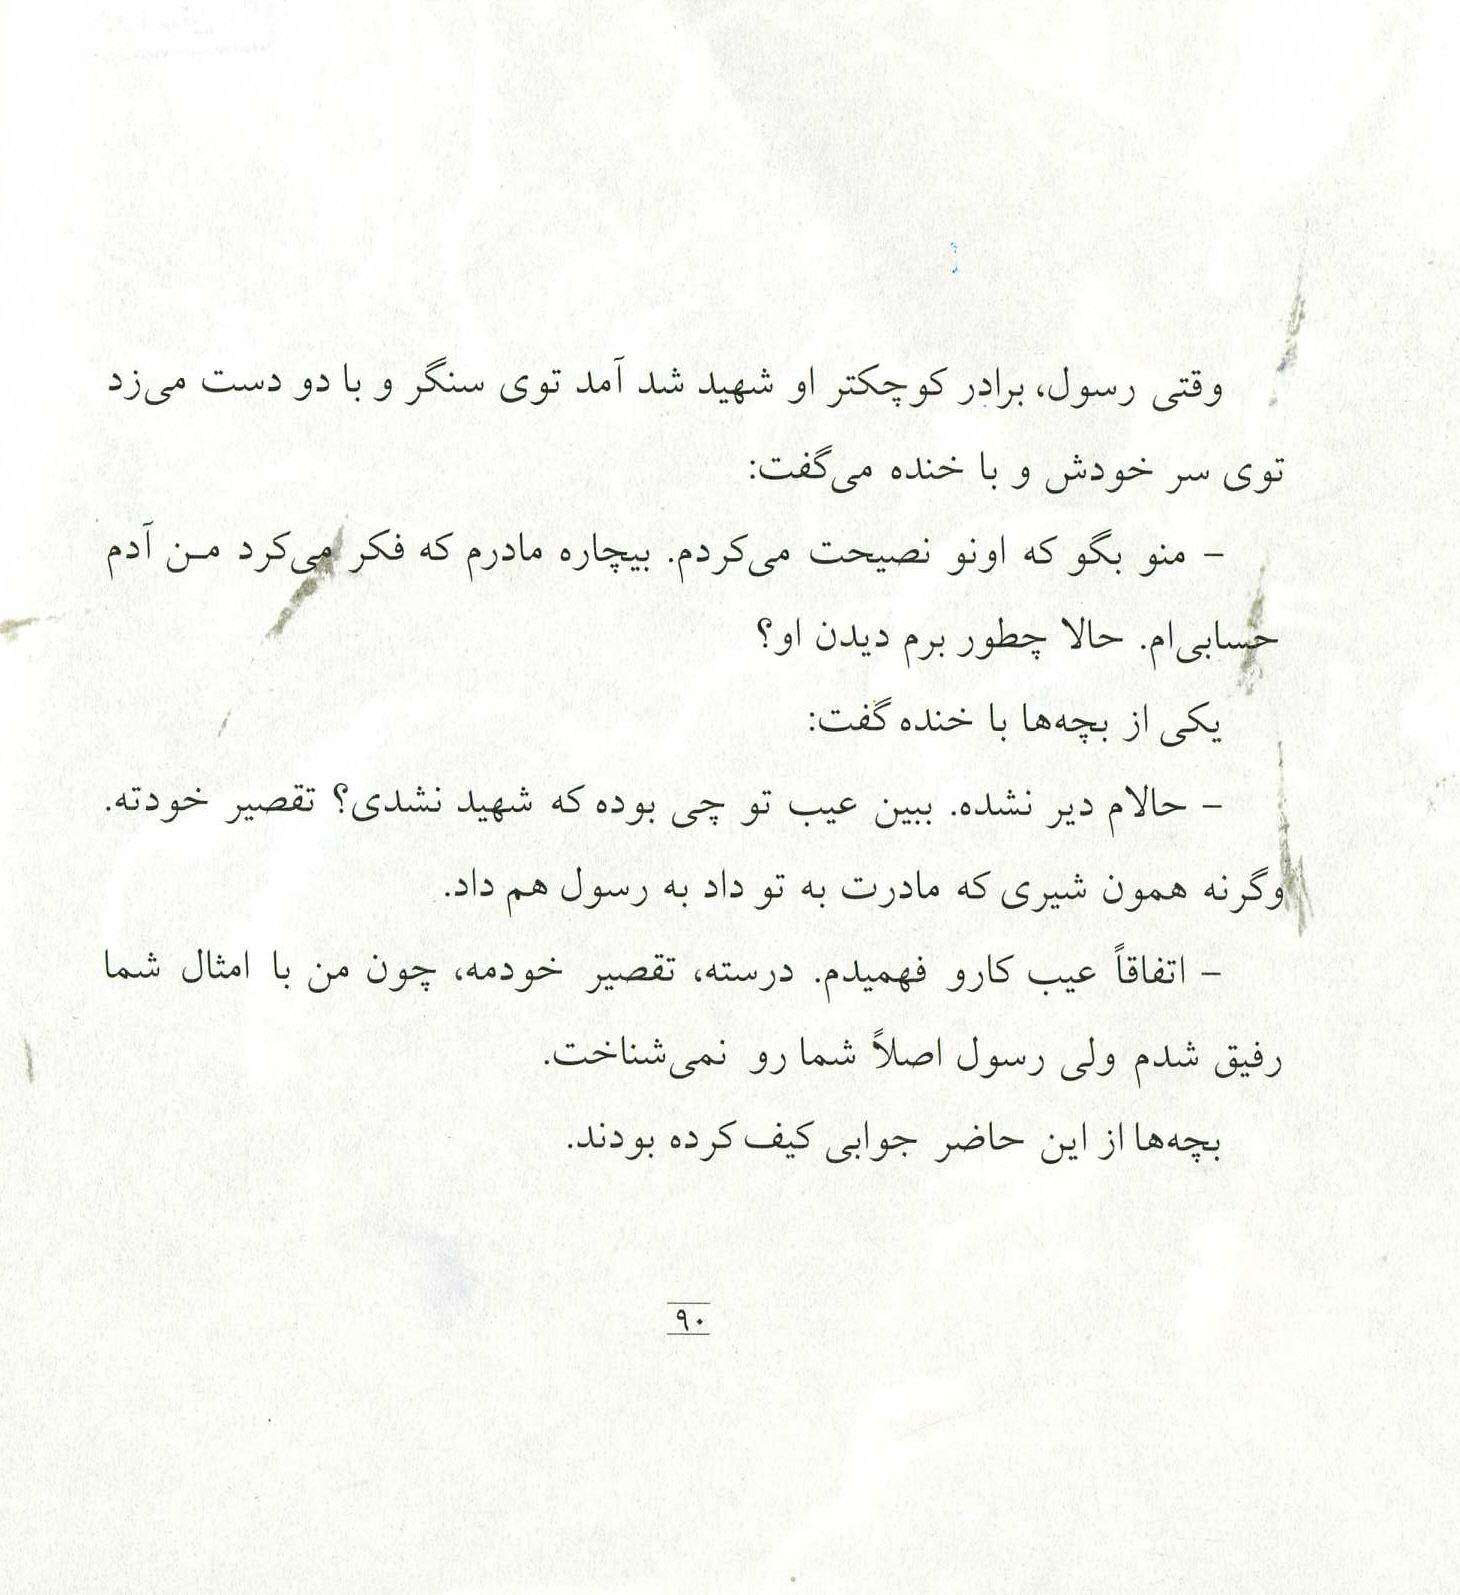 وقتی رسول، برادر کوچکتر او شهید شد آمد توی سنگر و با دو دست می‌زد
توی سر خودش و با خنده می‌گفت:
- منو بگو که اونو نصیحت می‌کردم. بیچاره مادرم که فکر می‌کرد مـن آدم
حسابی‌ام. حالا چطور برم دیدن او؟
یکی از بچه‌ها با خنده گفت:
- حالام دیر نشده. ببین عیب تو چی بوده که شهید نشدی؟ تقصیر خودته.
وگرنه همون شیری که مادرت به تو داد به رسول هم داد.
- اتفاقاً عیب کارو فهمیدم. درسته، تقصیر خودمه، چون من با امثال شما
رفیق شدم ولی رسول اصلاً شما رو نمی‌شناخت.
بچه‌ها از این حاضر جوابی کیف کرده بودند.
۹۰